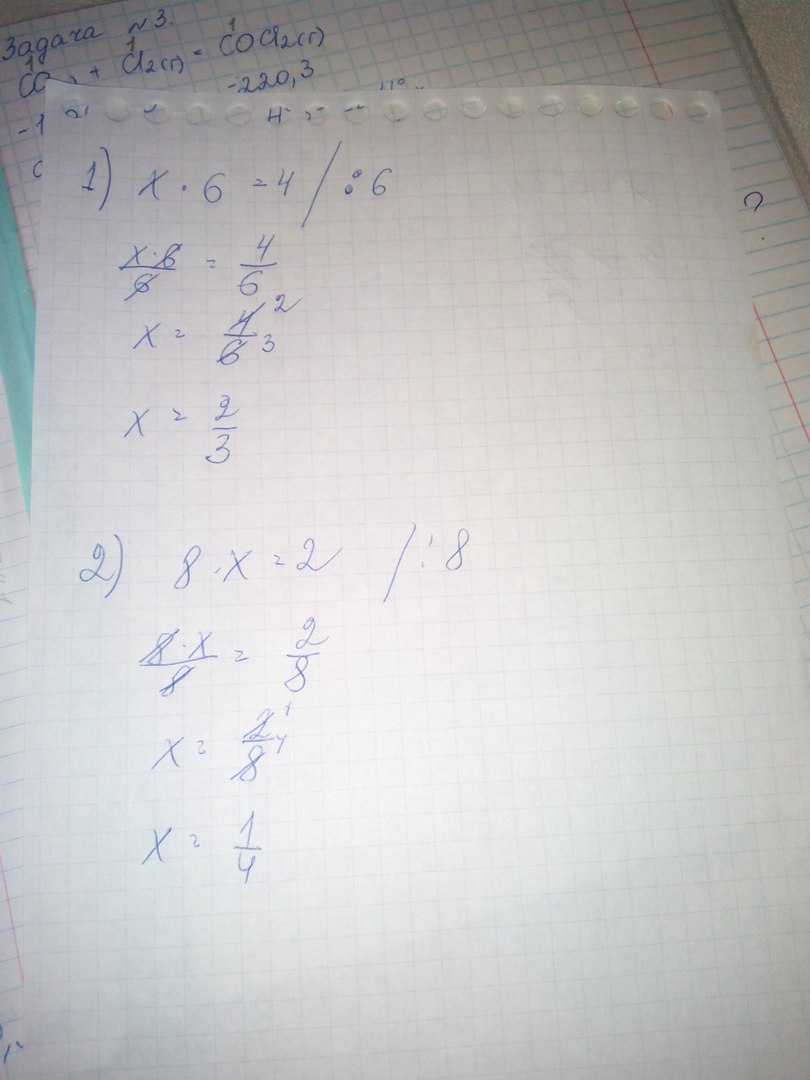 Задача №3.
1 1 1
CO + Cl2(г) = COCl2(г)
-220,3
-1
1) x · 6 = 4 / : 6
x·6/6 = 4/6
x = 4/6 2 3
x = 2/3
2) 8 · x = 2 / : 8
8·x/8 = 2/8
x = 2/8 1 4
x = 1/4